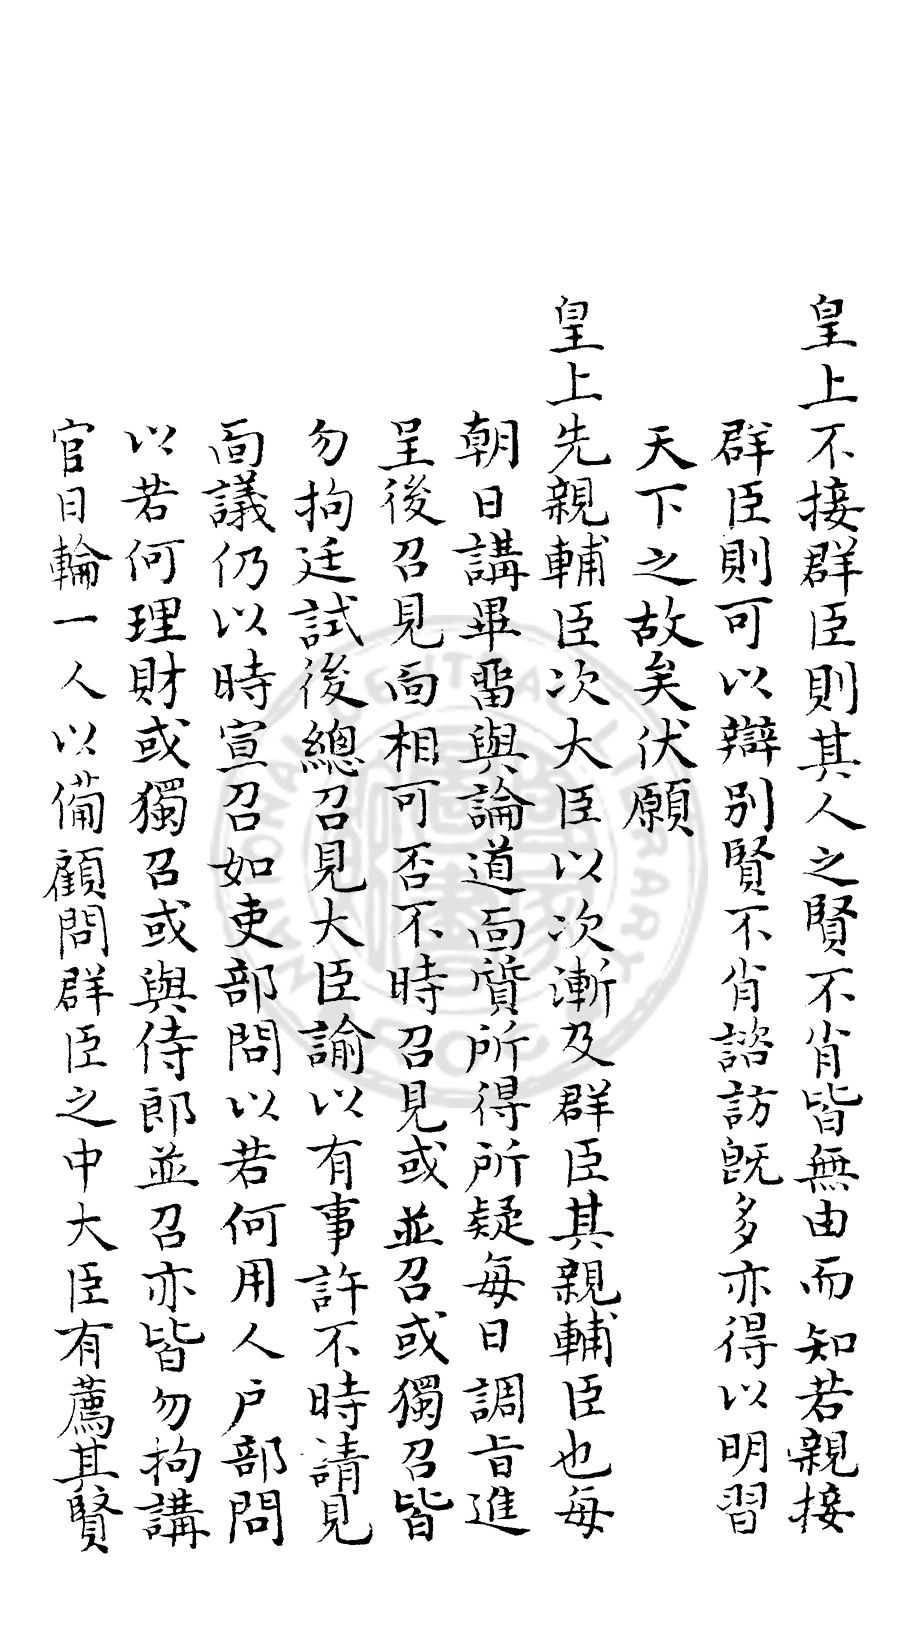 皇上不接群臣則其人之賢不肖皆無由而知若親接
群臣則可以辯別賢不肖諮訪旣多亦得以明習
天下之故矣伏願
皇上先親輔臣次大臣以次漸及群臣其親輔臣也每
朝日講畢畱與論道面質所得所疑每日調旨進
呈後召見面相可否不時召見或並召或獨召皆
勿拘廷試後總召見大臣諭以有事許不時請見
面議仍以時宣召如吏部問以若何用人户部問
以若何理財或獨召或與侍郎並召亦皆勿拘講
官日輪一人以備顧問群臣之中大臣有薦其賢